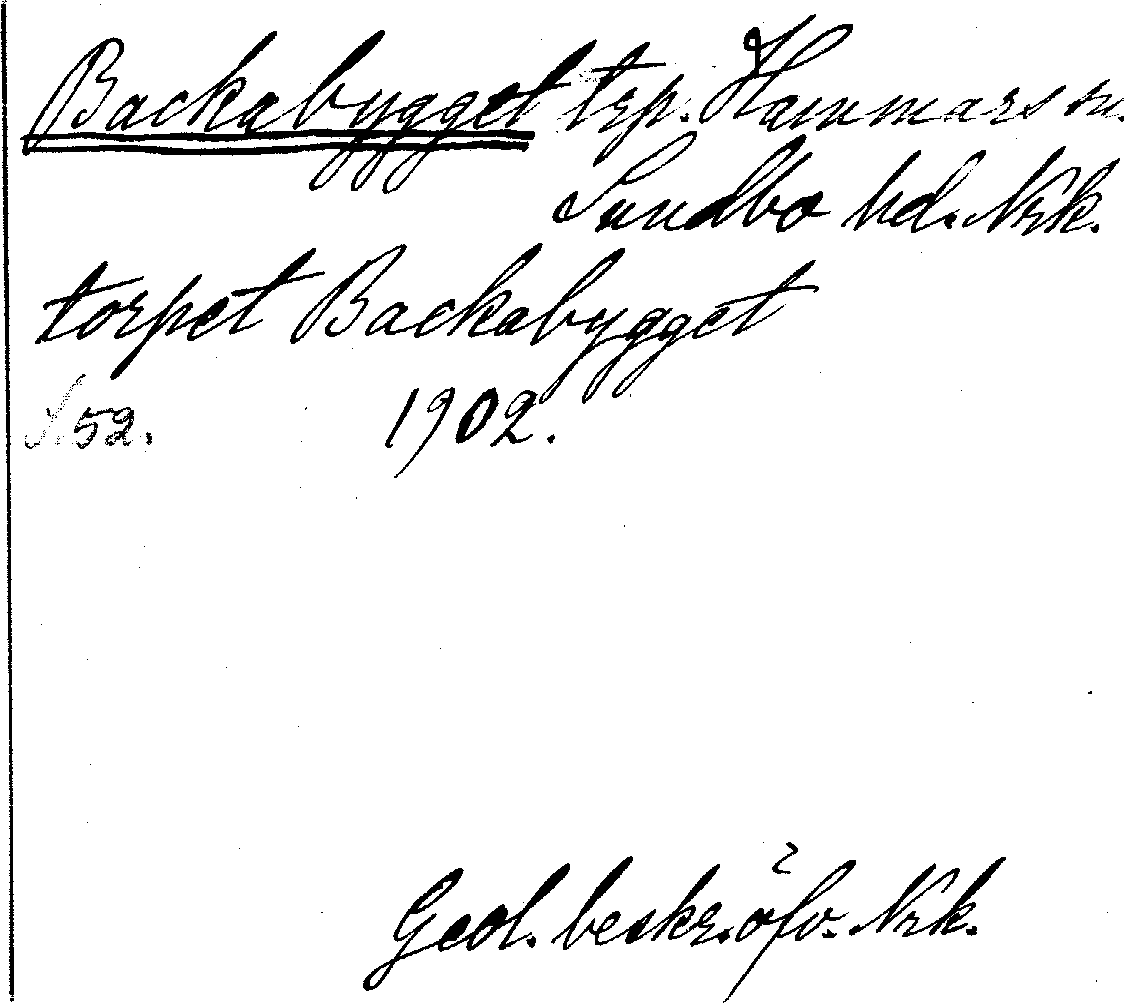 Backabygget trp. Hammars sn.
Sundbo hd. Nrk.
torpet Backabygget
S. 52. 1902.
Geol. beskr. öfv. Nrk.